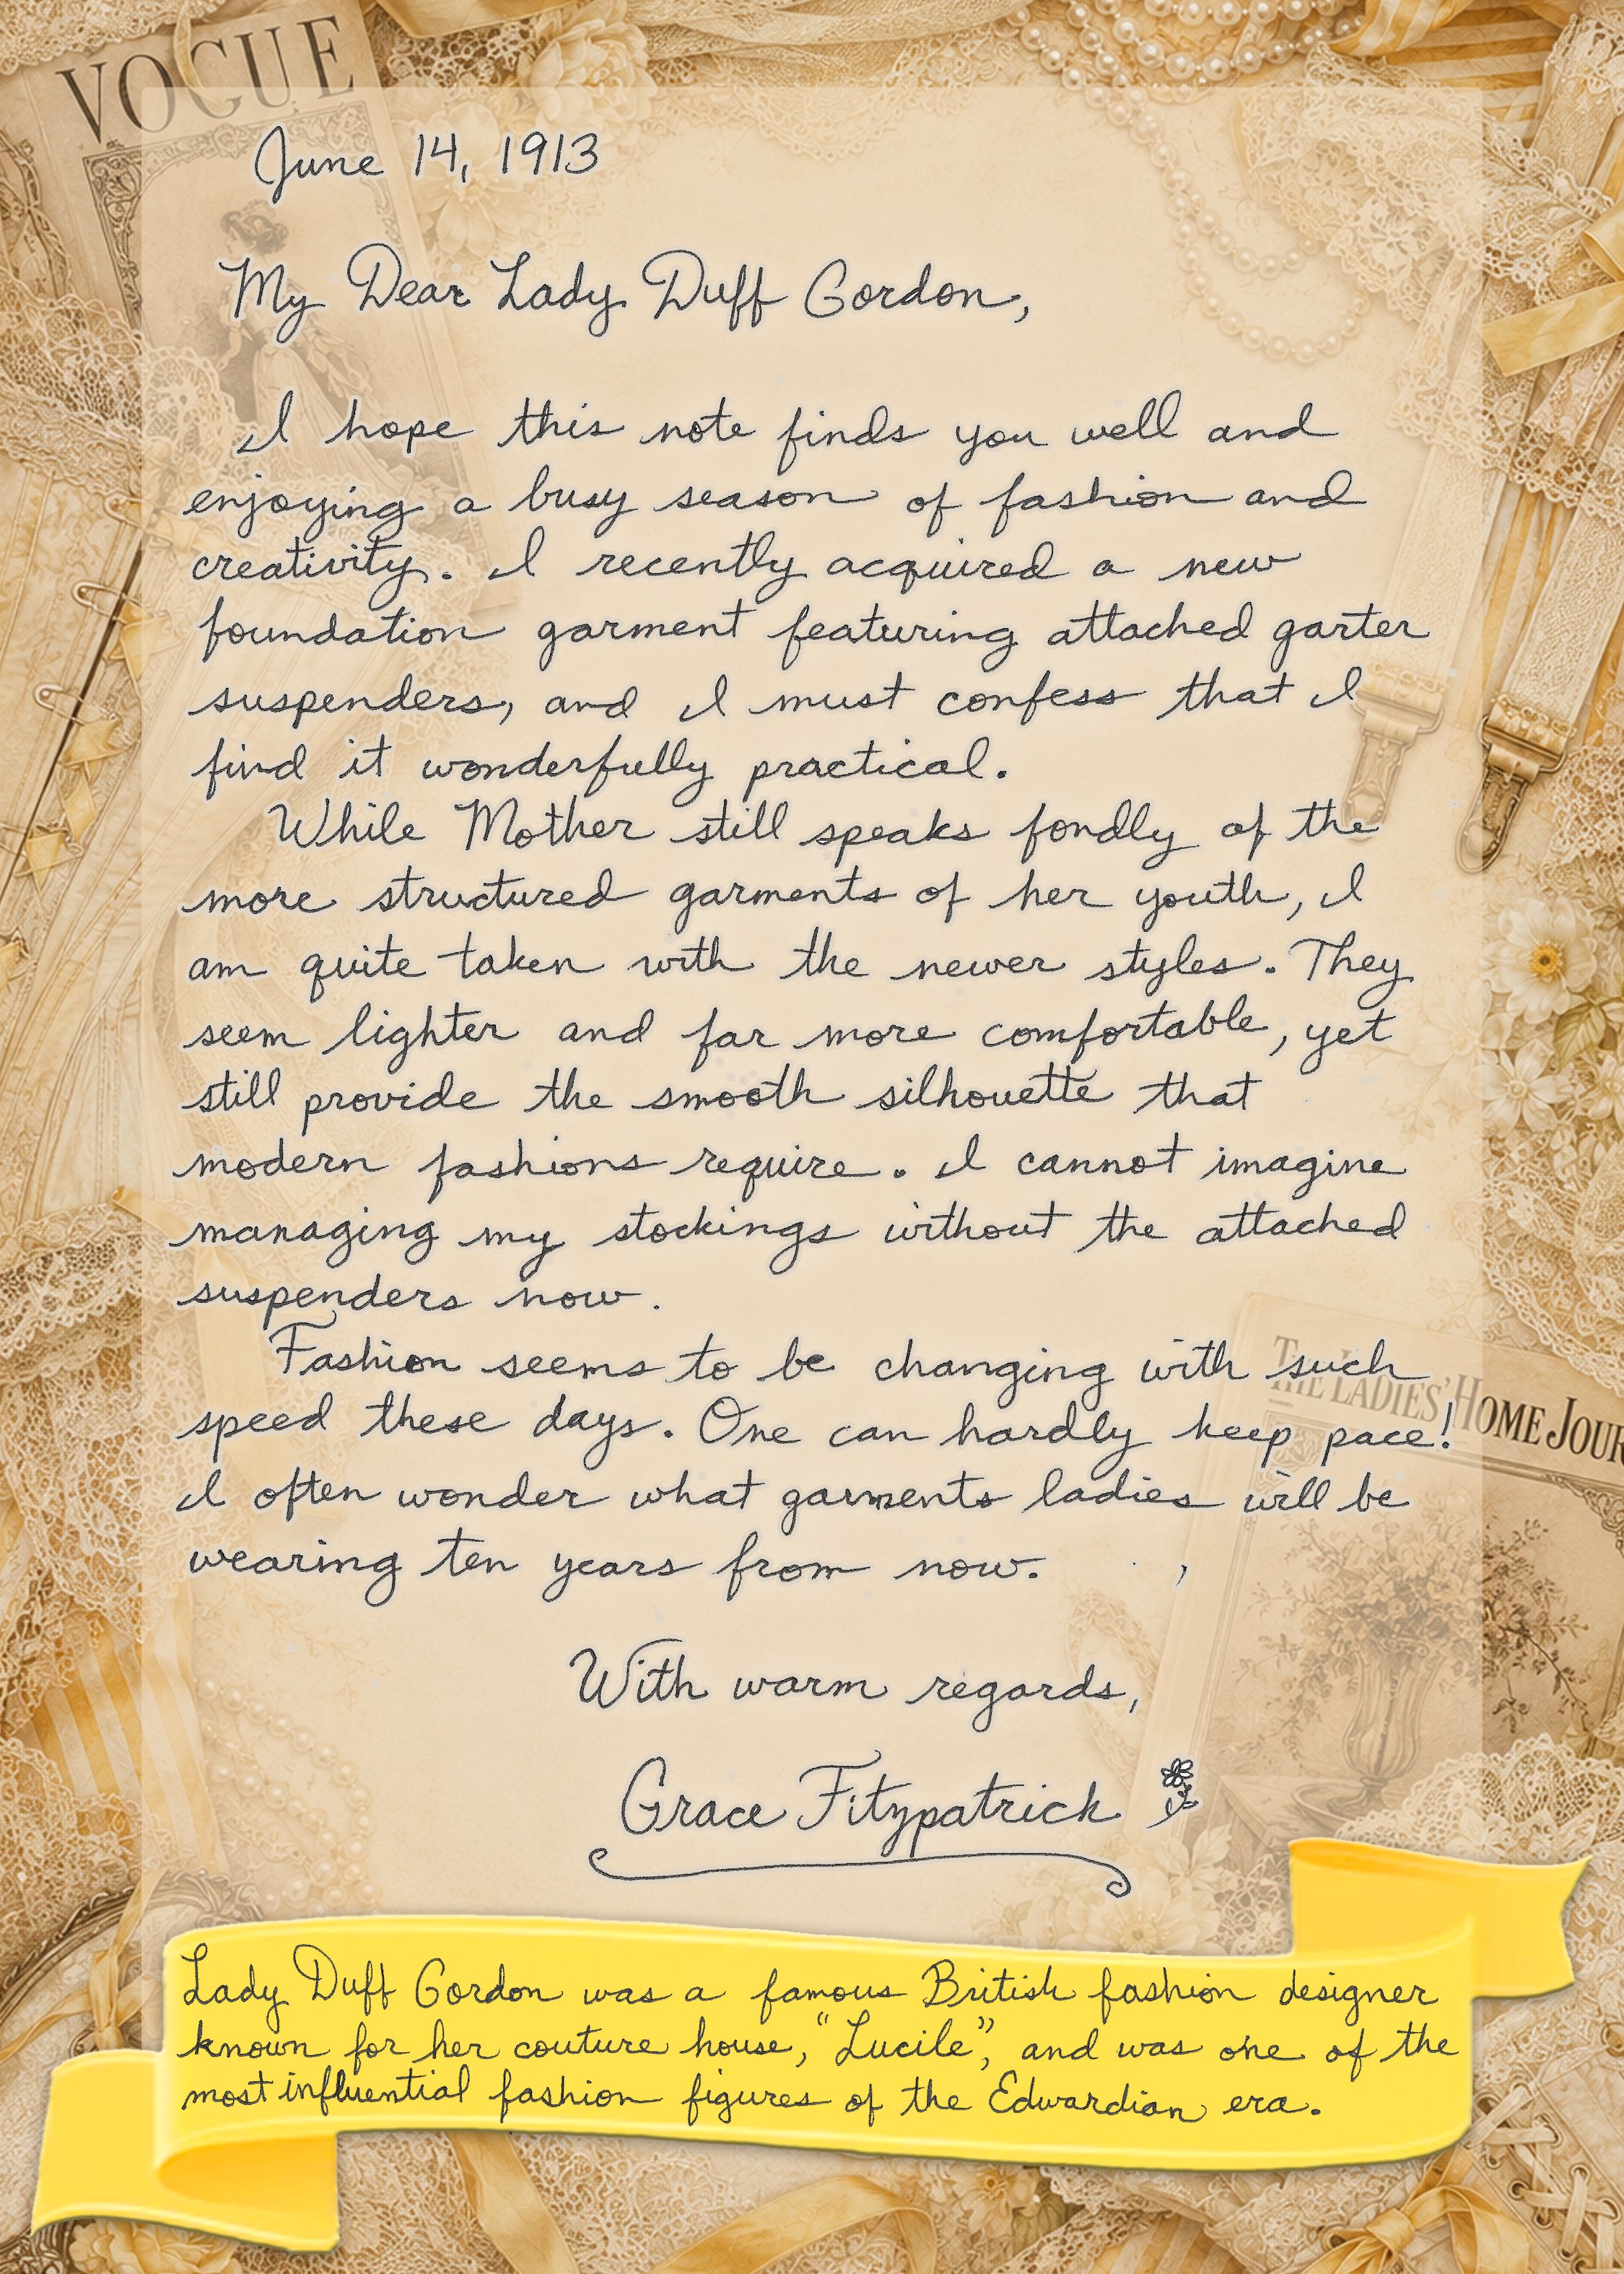 VOGUE
June 14, 1913
My Dear Lady Duff Gordon,
I hope this note finds you well and
enjoying a busy season of fashion and
creativity. I recently acquired a new
foundation garment featuring attached garter
suspenders, and I must confess that I
find it wonderfully practical.
While Mother still speaks fondly of the
more structured garments of her youth, I
am quite taken with the newer styles. They
seem lighter and far more comfortable, yet
still provide the smooth silhouette that
modern fashions require. I cannot imagine
managing my stockings without the attached
suspenders now.
Fashion seems to be changing with such
speed these days. One can hardly keep pace!
I often wonder what garments ladies will be
wearing ten years from now.
THE LADIES' HOME JOUR
With warm regards,
Grace Fitzpatrick
Lady Duff Gordon was a famous British fashion designer
known for her couture house, "Lucile", and was one of the
most influential fashion figures of the Edwardian era.